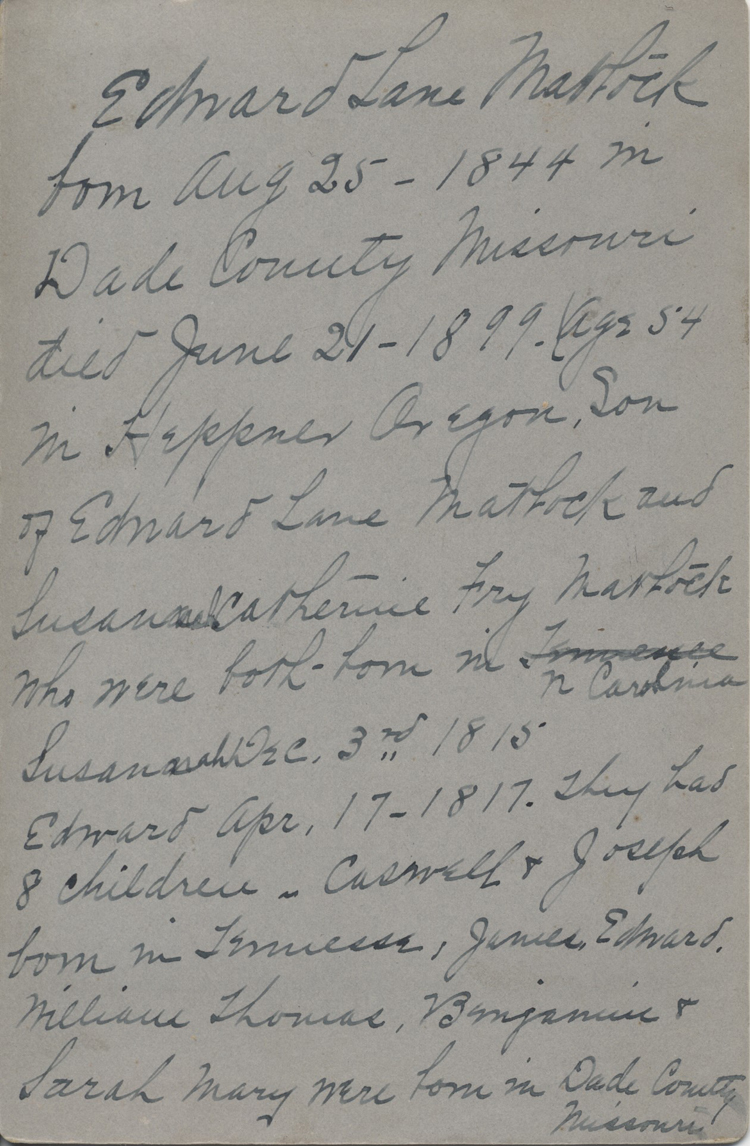 Edward Lane Matlock
born Aug 25 - 1844 in
Dade County Missouri
died June 21 - 1899. (Age 54
in Heppner Oregon, Son
of Edward Lane Matlock and
Susannah Catherine Fry Matlock
who were both born in Tennessee
N Carolina
Susannah Dec. 3rd 1815
Edward Apr. 17 - 1817. They had
8 children - Caswell & Joseph
born in Tennesse, James, Edward,
William Thomas, Benjamin &
Sarah Mary were born in Dade County
Missouri